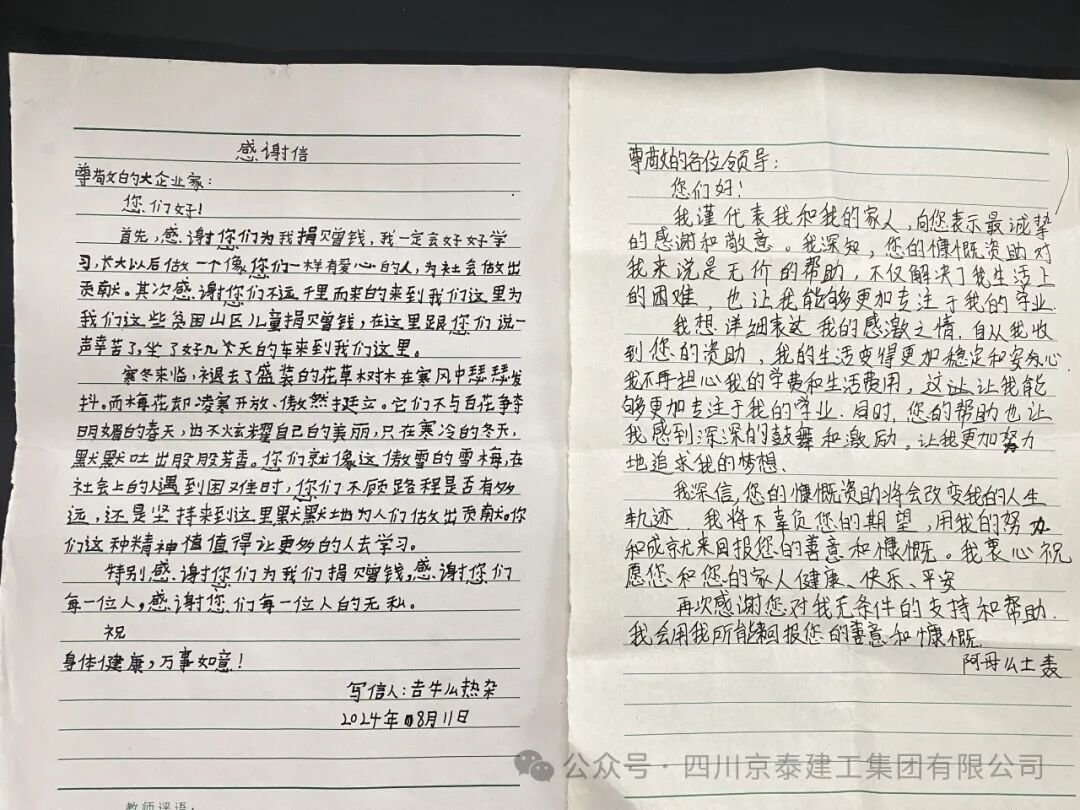 感谢信
尊敬的大企业家：
您们好！
首先，感谢您们为我捐赠钱，我一定会好好学
习，长大以后做一个像您们一样有爱心的人，为社会做出
贡献。其次感谢您们不远千里而来的来到我们这里为
我们这些贫困山区儿童捐赠钱，在这里跟您们说一
声辛苦了，坐了好几天的车来到我们这里。
寒冬来临，褪去了盛装的花草树木在寒风中瑟瑟发
抖。而梅花却凌寒开放、傲然挺立。它们不与百花争夺
明媚的春天，也不炫耀自己的美丽，只在寒冷的冬天，
默默吐出股股芳香。您们就像这傲雪的雪梅，在
社会上的人遇到困难时，您们不顾路程是否有多
远，还是坚持来到这里默默地为人们做出贡献。你
们这种精神值值得让更多的人去学习。
特别感谢您们为我们捐赠钱，感谢您们
每一位人，感谢您们每一位人的无私。
祝
身体健康，万事如意！
写信人：吉牛么热杂
2024年08月11日
教师评语：
尊敬的各位领导：
您们好！
我谨代表我和我的家人，向您表示最诚挚
的感谢和敬意。我深知，您的慷慨资助对
我来说是无价的帮助，不仅解决了我生活上
的困难，也让我能够更加专注于我的学业.
我想详细表达我的感激之情.自从我收
到您的资助、我的生活变得更加稳定和安心
我不再担心我的学费和生活费用，这让让我能
够更加专注于我的学业.同时，您的帮助也让
我感到深深的鼓舞和激励。让我更加努力
地追求我的梦想、
我深信，您的慷慨资助将会改变我的人生
轨迹.我将不辜负您的期望，用我的努力
和成就来回报您的善意和慷慨。我衷心祝
愿您和您的家人健康、快乐、平安
再次感谢您对我无条件的支持和帮助.
我会用我所能回报您的善意和慷慨.
阿母么土轰
公众号·四川京泰建工集团有限公司